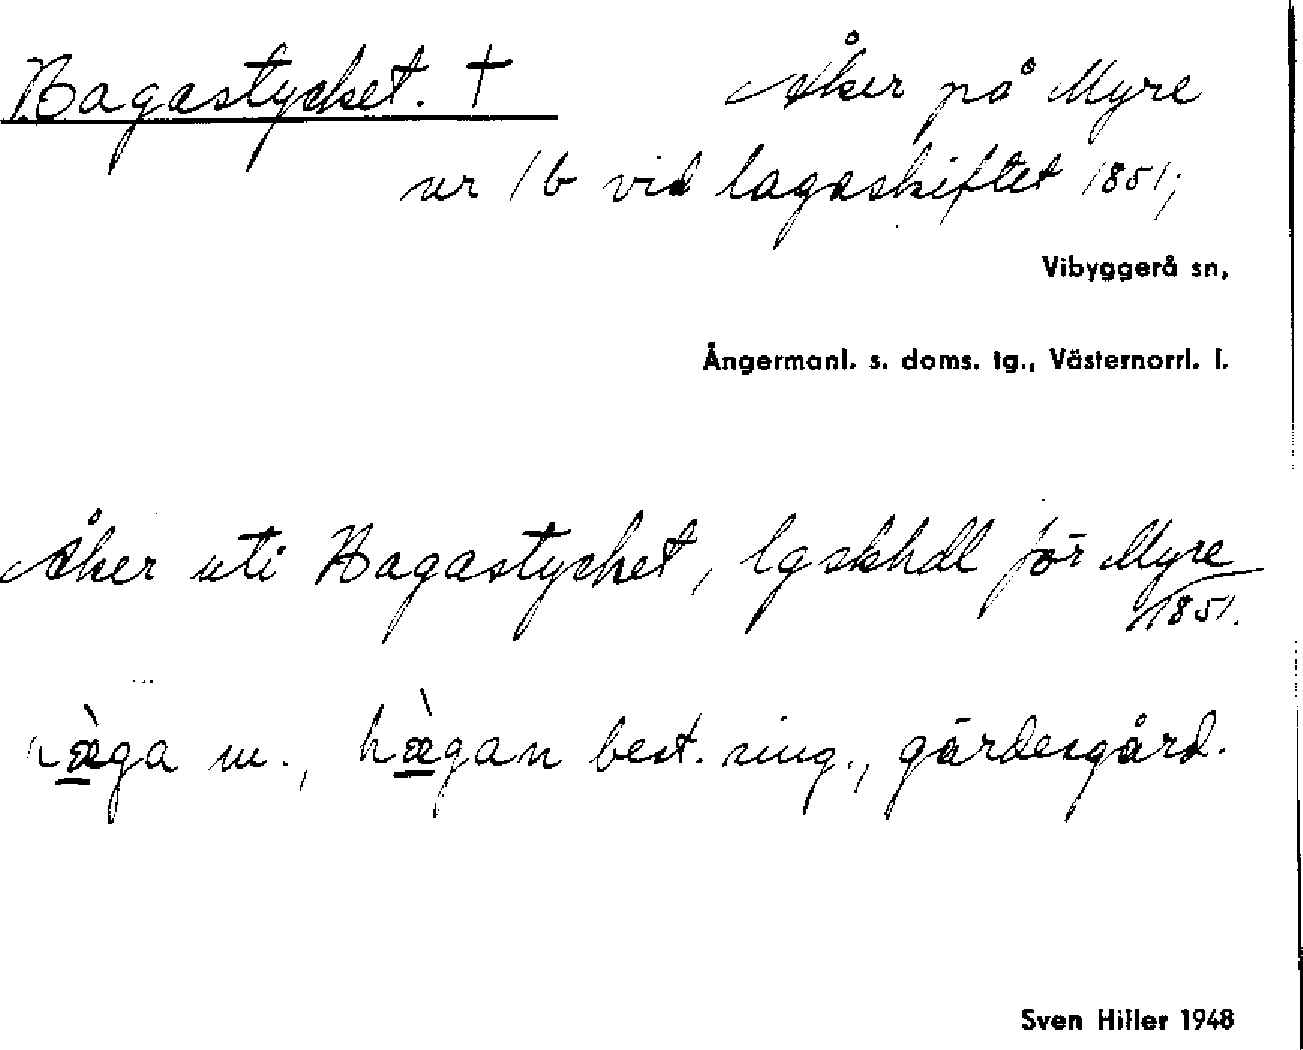 Hagastycket. † Åker på Myre
nr 1b vid lagaskiftet 1851;
Vibyggerå sn,
Ångermanl. s. doms. tg., Västernorrl. l.
Åker uti Hagastycket, lgskhdl för Myre
1851.
hæ̀ga m., hæ̀gan best. sing., gärdesgård.
Sven Hiller 1948